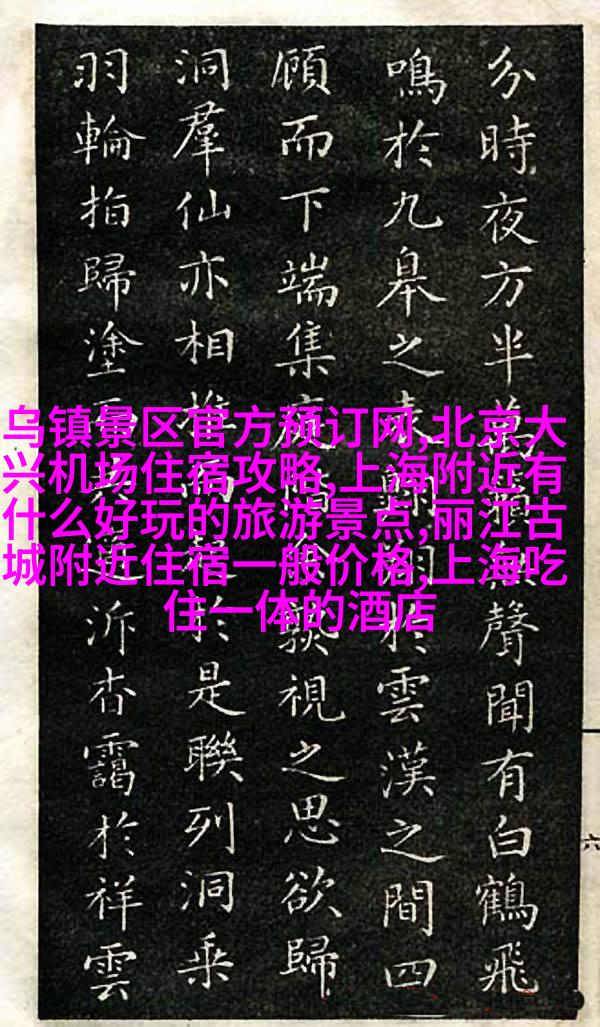 分時夜方半萬聲聞有白鶴飛
鳴於九皋之表於雲漢之間四
顧而下端集視之思欲歸
洞羣仙亦相於是聯列洞乘
羽輪指歸塗泝杳靄於祥雲
乌镇景区官方预订网,北京大
兴机场住宿攻略,上海附近有
什么好玩的旅游景点,丽江古
城附近住宿一般价格,上海吃
住一体的酒店
六